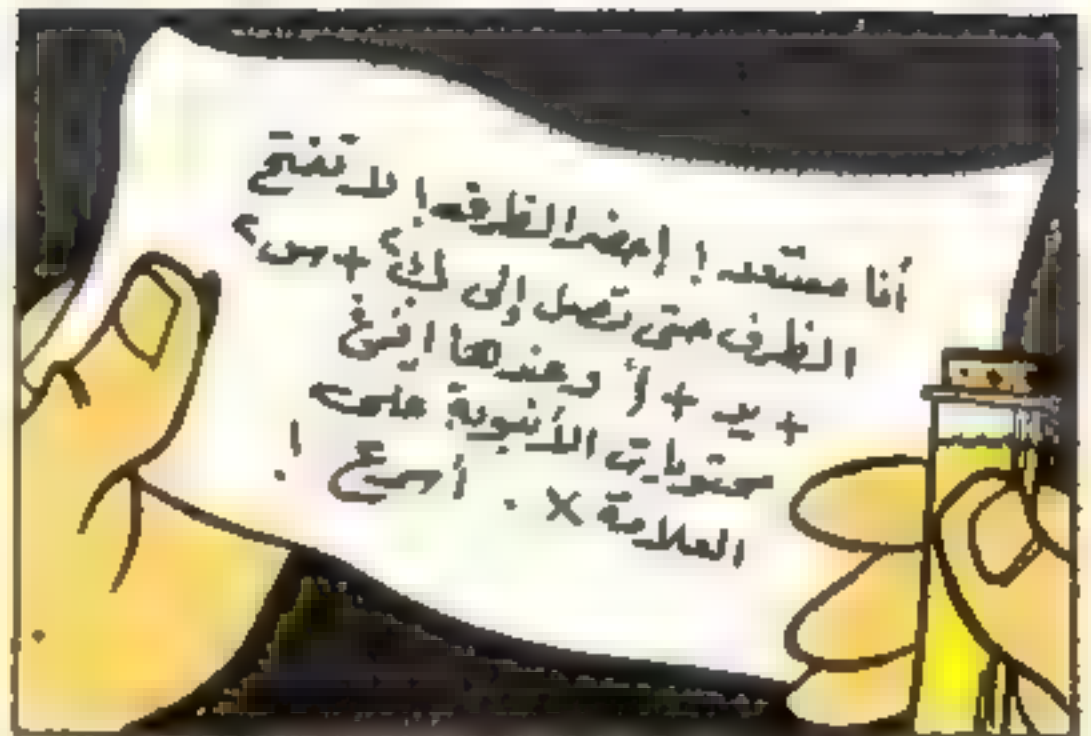 أنا مستعد ! إحضر الظرف ! لا تفتح
الظرف حتى تصل إلى ك؟ + س؟
+ يد + أ وعندها افرغ
محتويات الأنبوبة على
العلامة × . أسرع !